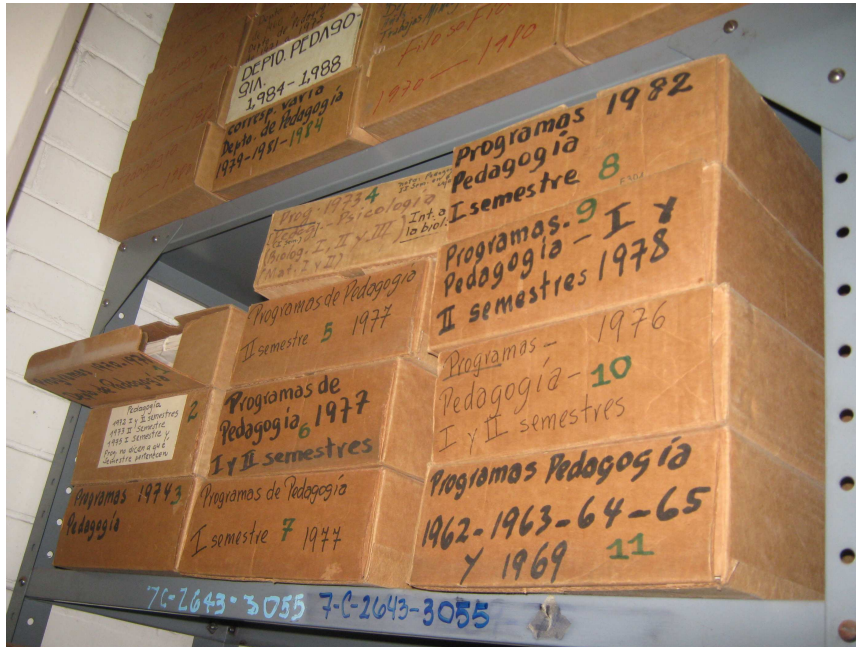 DEPTO. PEDAGO-
GIA.
1984-1988
corresp. varia
Depto. de Pedagogía
1979-1981-1984
Filosofía
1970 — 1980
Programas 1982
Pedagogía
I semestre 8
Prog. 1973 4
Psicología
(Biolog. I, II y III) Int. a
la biol.
(Mat. I y II)
Programas. 9
Pedagogía - I y
II semestres 1978
Programas de Pedagogía
II semestre 5 1977
Programas - 1976
Pedagogía - 10
I y II semestres
Pedagogía
1972 I y II semestres
1973 II semestre
1975 I semestre y
Prog. no dicen a qué
semestre pertenecen
2
Programas de
Pedagogía 6 1977
I y II semestres
Programas 1974 3
Pedagogía
Programas de Pedagogía
I semestre 7 1977
Programas Pedagogía
1962-1963-64-65
y 1969 11
7C-2643-3055 7-C-2643-3055